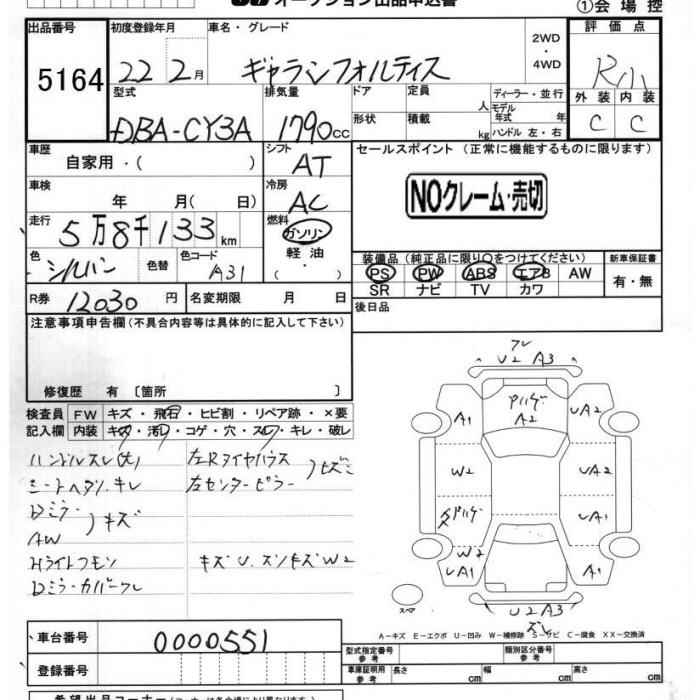 オークション出品申込書
①会場控
出品番号 初度登録年月 車名・グレード 2WD ・ 4WD 評価点
5164 22 2月 ギャランフォルティス R小
型式 排気量 ドア 定員 人 ディーラー・並行 外装 内装
DBA-CY3A 1790cc 形状 積載 kg モデル年式 年 ハンドル 左・右 C C
車歴 自家用・( ) シフト AT セールスポイント (正常に機能するものに限ります)
車検 年 月( 日) 冷房 AC NOクレーム・売切
走行 5万8千133km 燃料 ガソリン 軽油 ・( )
色 シルバー 色替 色コード A31
装備品(純正品に限り○をつけてください) 新車保証書
PS PW ABS エアB AW 有・無
SR ナビ TV カワ
R券 12030円 名変期限 月 日 後日品
注意事項申告欄(不具合内容等は具体的に記入して下さい)
修復歴 有 〔箇所 〕
検査員 FW キズ・飛石・ヒビ割・リペア跡・×要
記入欄 内装 キズ・汚れ・コゲ・穴・スレ・キレ・破レ
ハンドルスレ(大) 左Rタイヤハウス
シートヘタリ・キレ 左センターピラー
Dミラー
AW キズ
Hライトクモリ キズU.
Dミラーカバー
U2 A3
A2
A1 UA2
W2 UA2
UA1
W2
UA1 A1
U2 A3
スペア
A-キズ E-エクボ U-凹み W-補修跡 S-サビ C-腐食 XX-交換済
車台番号 0000551
登録番号
型式指定番号 参考 類別区分番号 参考
車庫証明用 参考 長さ cm 幅 cm 高さ cm